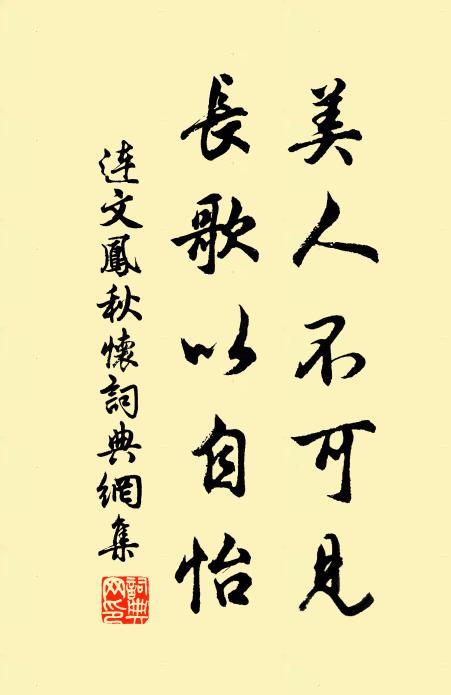 美人不可見
長歌以自怡
連文鳳秋懷詞典網集
詞典網印